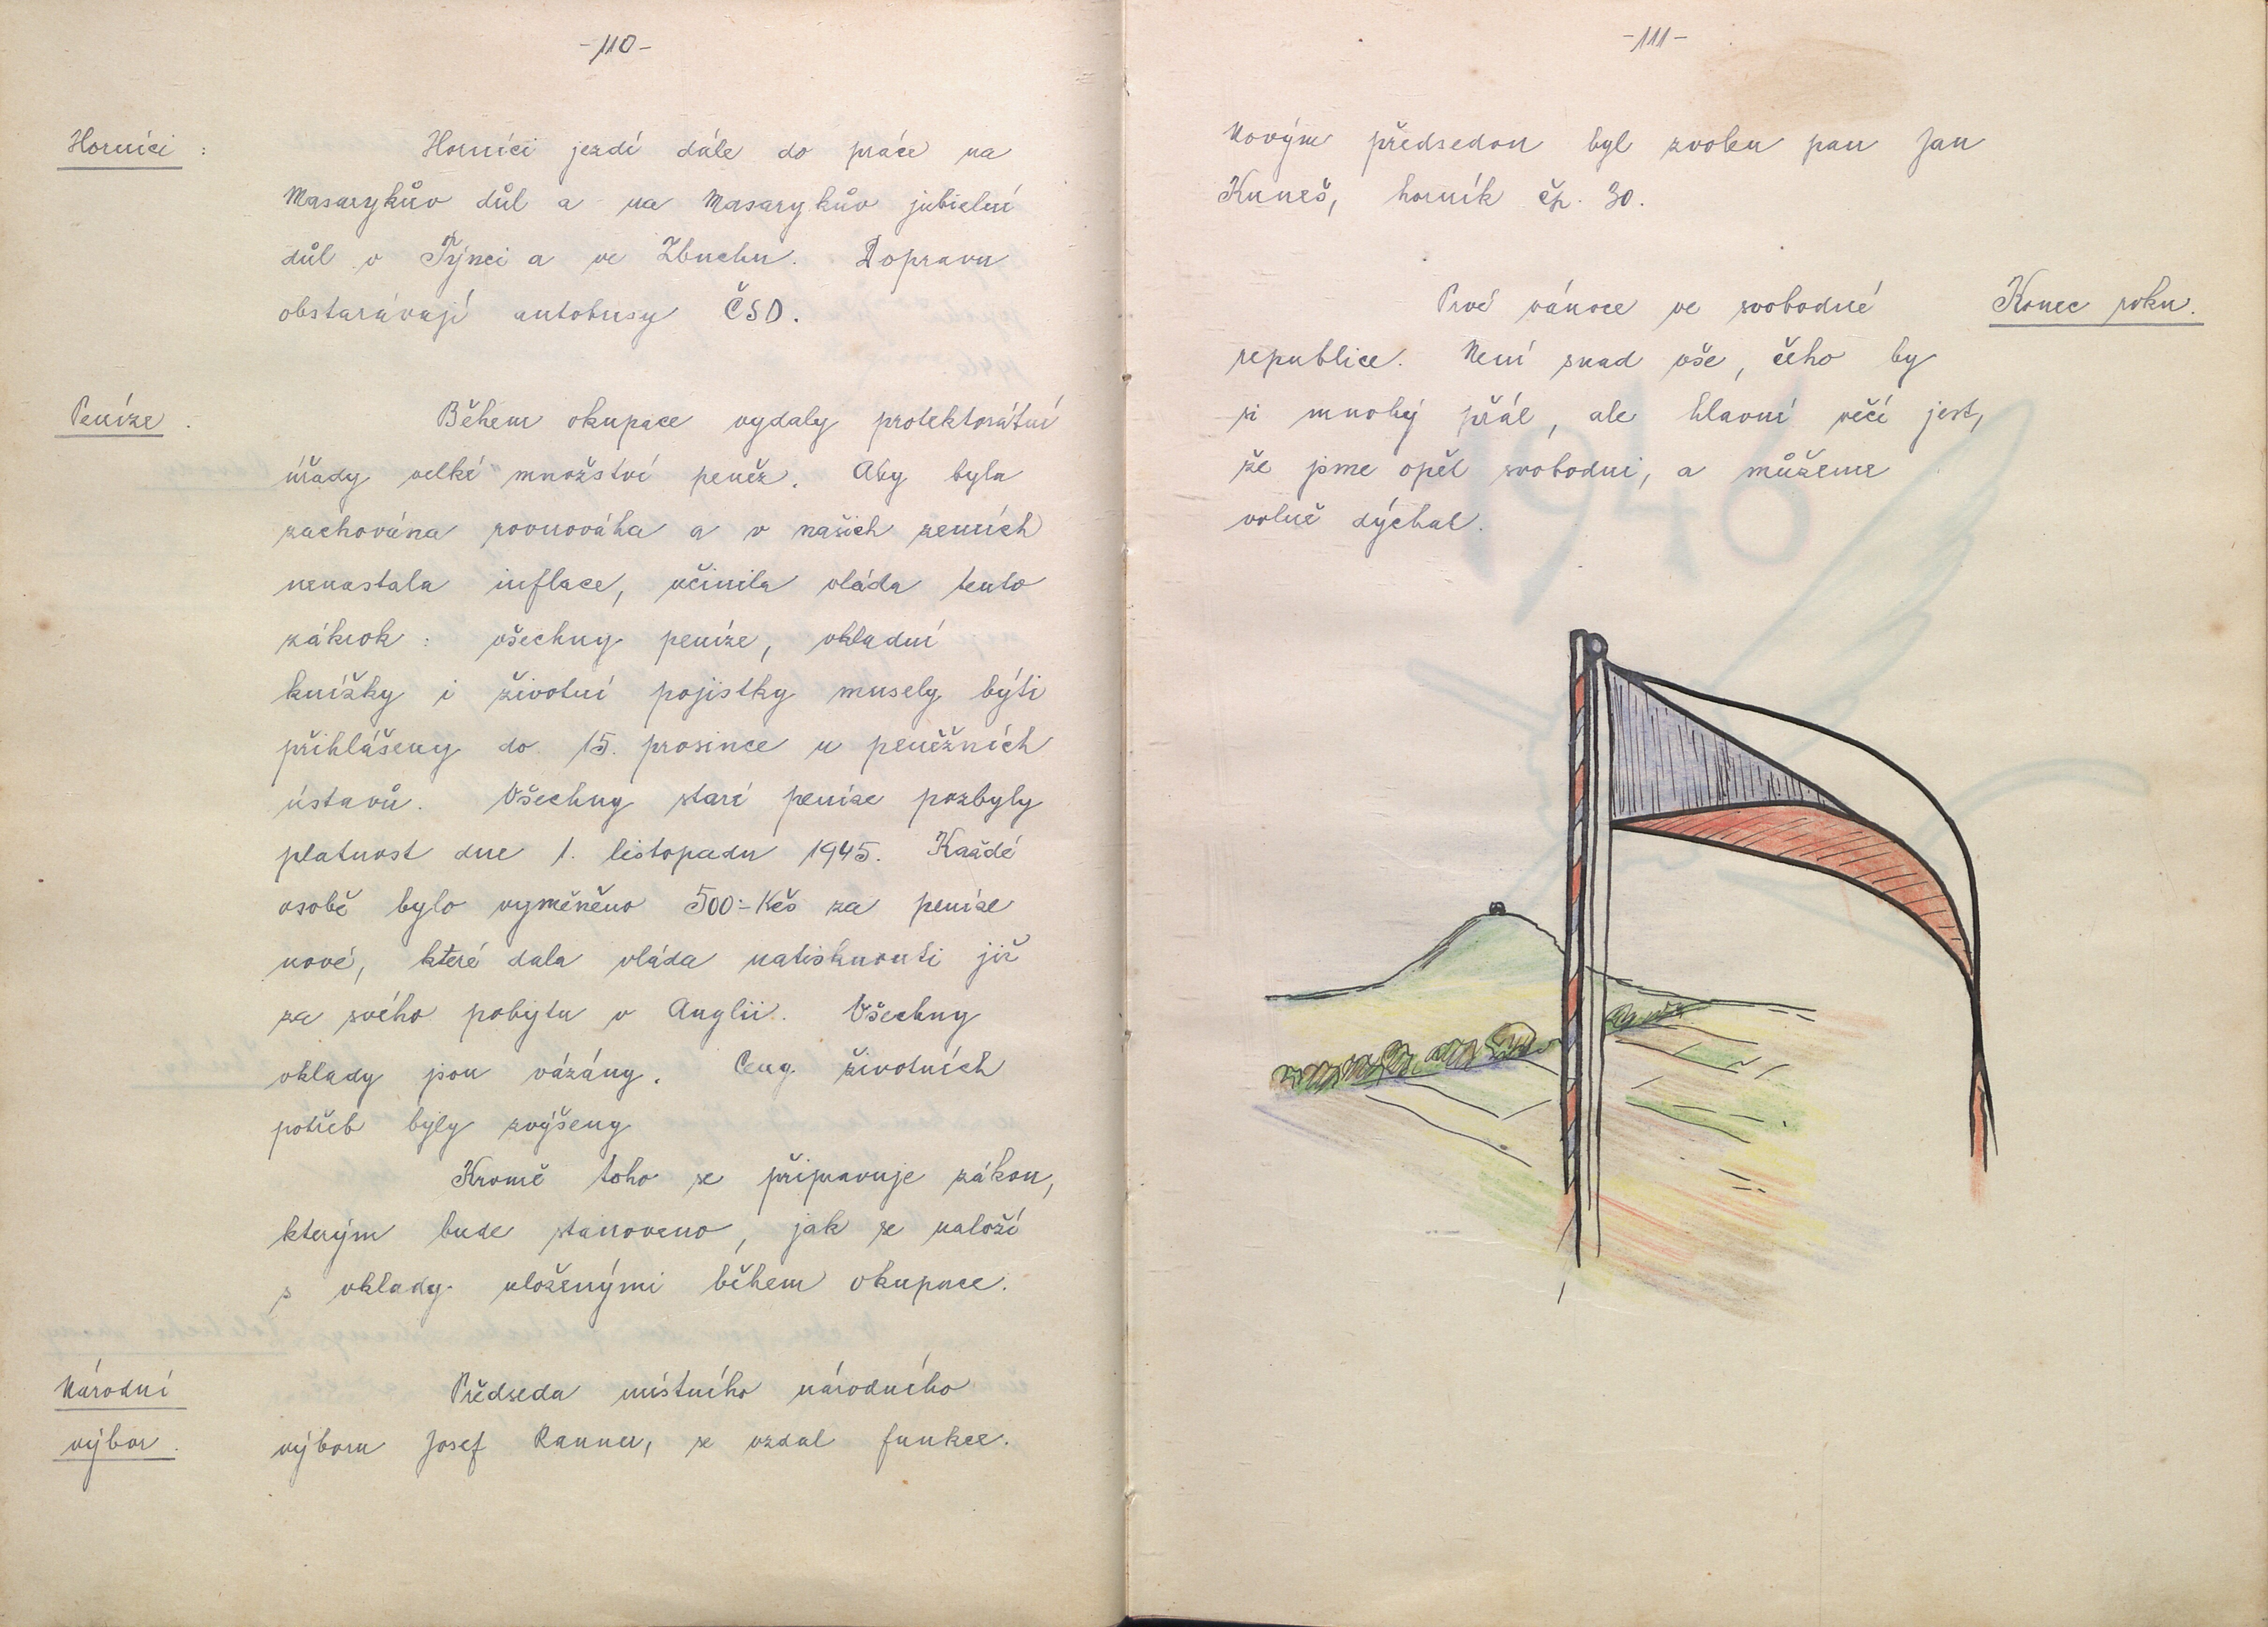 -110-
Horníci :
Horníci jezdí dále do práce na
Masarykův důl a na Masarykův jubielní
důl v Týnci a ve Zbuchu. Dopravu
obstarávají autobusy ČSD.
Peníze.
Během okupace vydaly protektorátní
úřady velké množství peněz. Aby byla
zachována rovnováha a v našich zemích
nenastala inflace, učinila vláda tento
zákrok : všechny peníze, vkladní
knížky i životní pojistky musely býti
přihlášeny do 15. prosince u peněžních
ústavů. Všechny staré peníze pozbyly
platnost dne 1. listopadu 1945. Každé
osobě bylo vyměněno 500:- Kčs za peníze
nové, které dala vláda natisknouti již
za svého pobytu v Anglii. Všechny
vklady jsou vázány. Ceny životních
potřeb byly zvýšeny
Kromě toho se připravuje zákon,
kterým bude stanoveno, jak se naloží
s vklady uloženými během okupace.
Národní
výbor.
Předseda místního národního
výboru Josef Ranner, se vzdal funkce.
-111-
Novým předsedou byl zvolen pan Jan
Kuneš, horník čp. 30.
Konec roku.
Prvé vánoce ve svobodné
republice. Není snad vše, čeho by
si mnohý přál, ale hlavní věcí jest,
že jsme opět svobodni, a můžeme
volně dýchat.